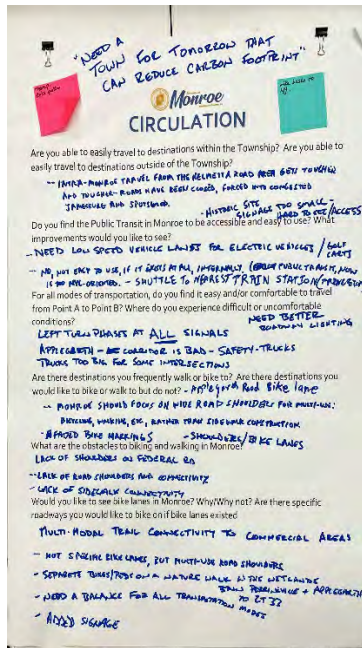 "NEED A
TOWN FOR TOMORROW THAT
CAN REDUCE CARBON FOOTPRINT"
Monroe
CIRCULATION
Are you able to easily travel to destinations within the Township? Are you able to
easily travel to destinations outside of the Township?
-INTRA-MONROE TRAVEL FROM THE HELMETTA ROAD AREA GETS TOUGHER
AND TOUGHER - ROADS HAVE BEEN CLOSED, FORCED INTO CONGESTED
JAMESBURG AND SPOTSWOOD.
-HISTORIC SITE
SIGNAGE TOO SMALL -
HARD TO SEE/ACCESS
Do you find the Public Transit in Monroe to be accessible and easy to use? What
improvements would you like to see?
-NEED LOW SPEED VEHICLE LANES FOR ELECTRIC VEHICLES / GOLF
CARTS
- NO, NOT EASY TO USE, IF IT EXISTS AT ALL, INTERNALLY, PUBLIC TRANSIT, NOW
IS NYC-ORIENTED. - SHUTTLE TO NEAREST TRAIN STATION
For all modes of transportation, do you find it easy and/or comfortable to travel
from Point A to Point B? Where do you experience difficult or uncomfortable
conditions?
NEED BETTER
ROADWAY LIGHTING
LEFT TURN PHASES AT ALL SIGNALS
APPLEGARTH - CORRIDOR IS BAD - SAFETY-TRUCKS
TRUCKS TOO BIG FOR SOME INTERSECTIONS
Are there destinations you frequently walk or bike to? Are there destinations you
would like to bike or walk to but do not? - Applegarth Road Bike lane
- MONROE SHOULD FOCUS ON WIDE ROAD SHOULDERS FOR MULTI-USE:
BICYCLING, WALKING, ETC, RATHER THAN SIDEWALK CONSTRUCTION
- BIKE MARKINGS - SHOULDERS/BIKE LANES
What are the obstacles to biking and walking in Monroe?
LACK OF SHOULDERS ON FEDERAL RD
-LACK OF ROAD SHOULDERS AND CONNECTIVITY
- LACK OF SIDEWALK CONNECTIVITY
Would you like to see bike lanes in Monroe? Why/Why not? Are there specific
roadways you would like to bike on if bike lanes existed
MULTI-MODAL TRAIL CONNECTIVITY TO COMMERCIAL AREAS
- NOT SPECIAL BIKE LANES, BUT MULTI-USE ROAD SHOULDERS
- SEPARATE BIKES/PEDS ON A NATURE WALK IN THE WETLANDS
BTWN PERRINEVILLE + APPLEGARTH
TO RT 33
- NEED A BALANCE FOR ALL TRANSPORTATION MODES
- ADDED SIGNAGE